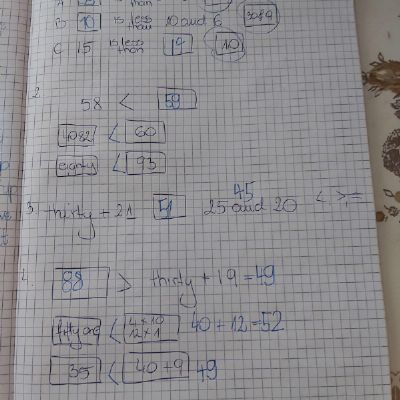 A is less than
B 10 is less than 10 and 6
C 15 is less than 19 10
2.
58 < 59
< 60
eighty < 93
3. thirty + 21 51 25 and 20 45 < > =
4.
88 > thirty + 19 = 49
fifty one < 4 x 10 12 x 1 40 + 12 = 52
35 < 40 + 9 49